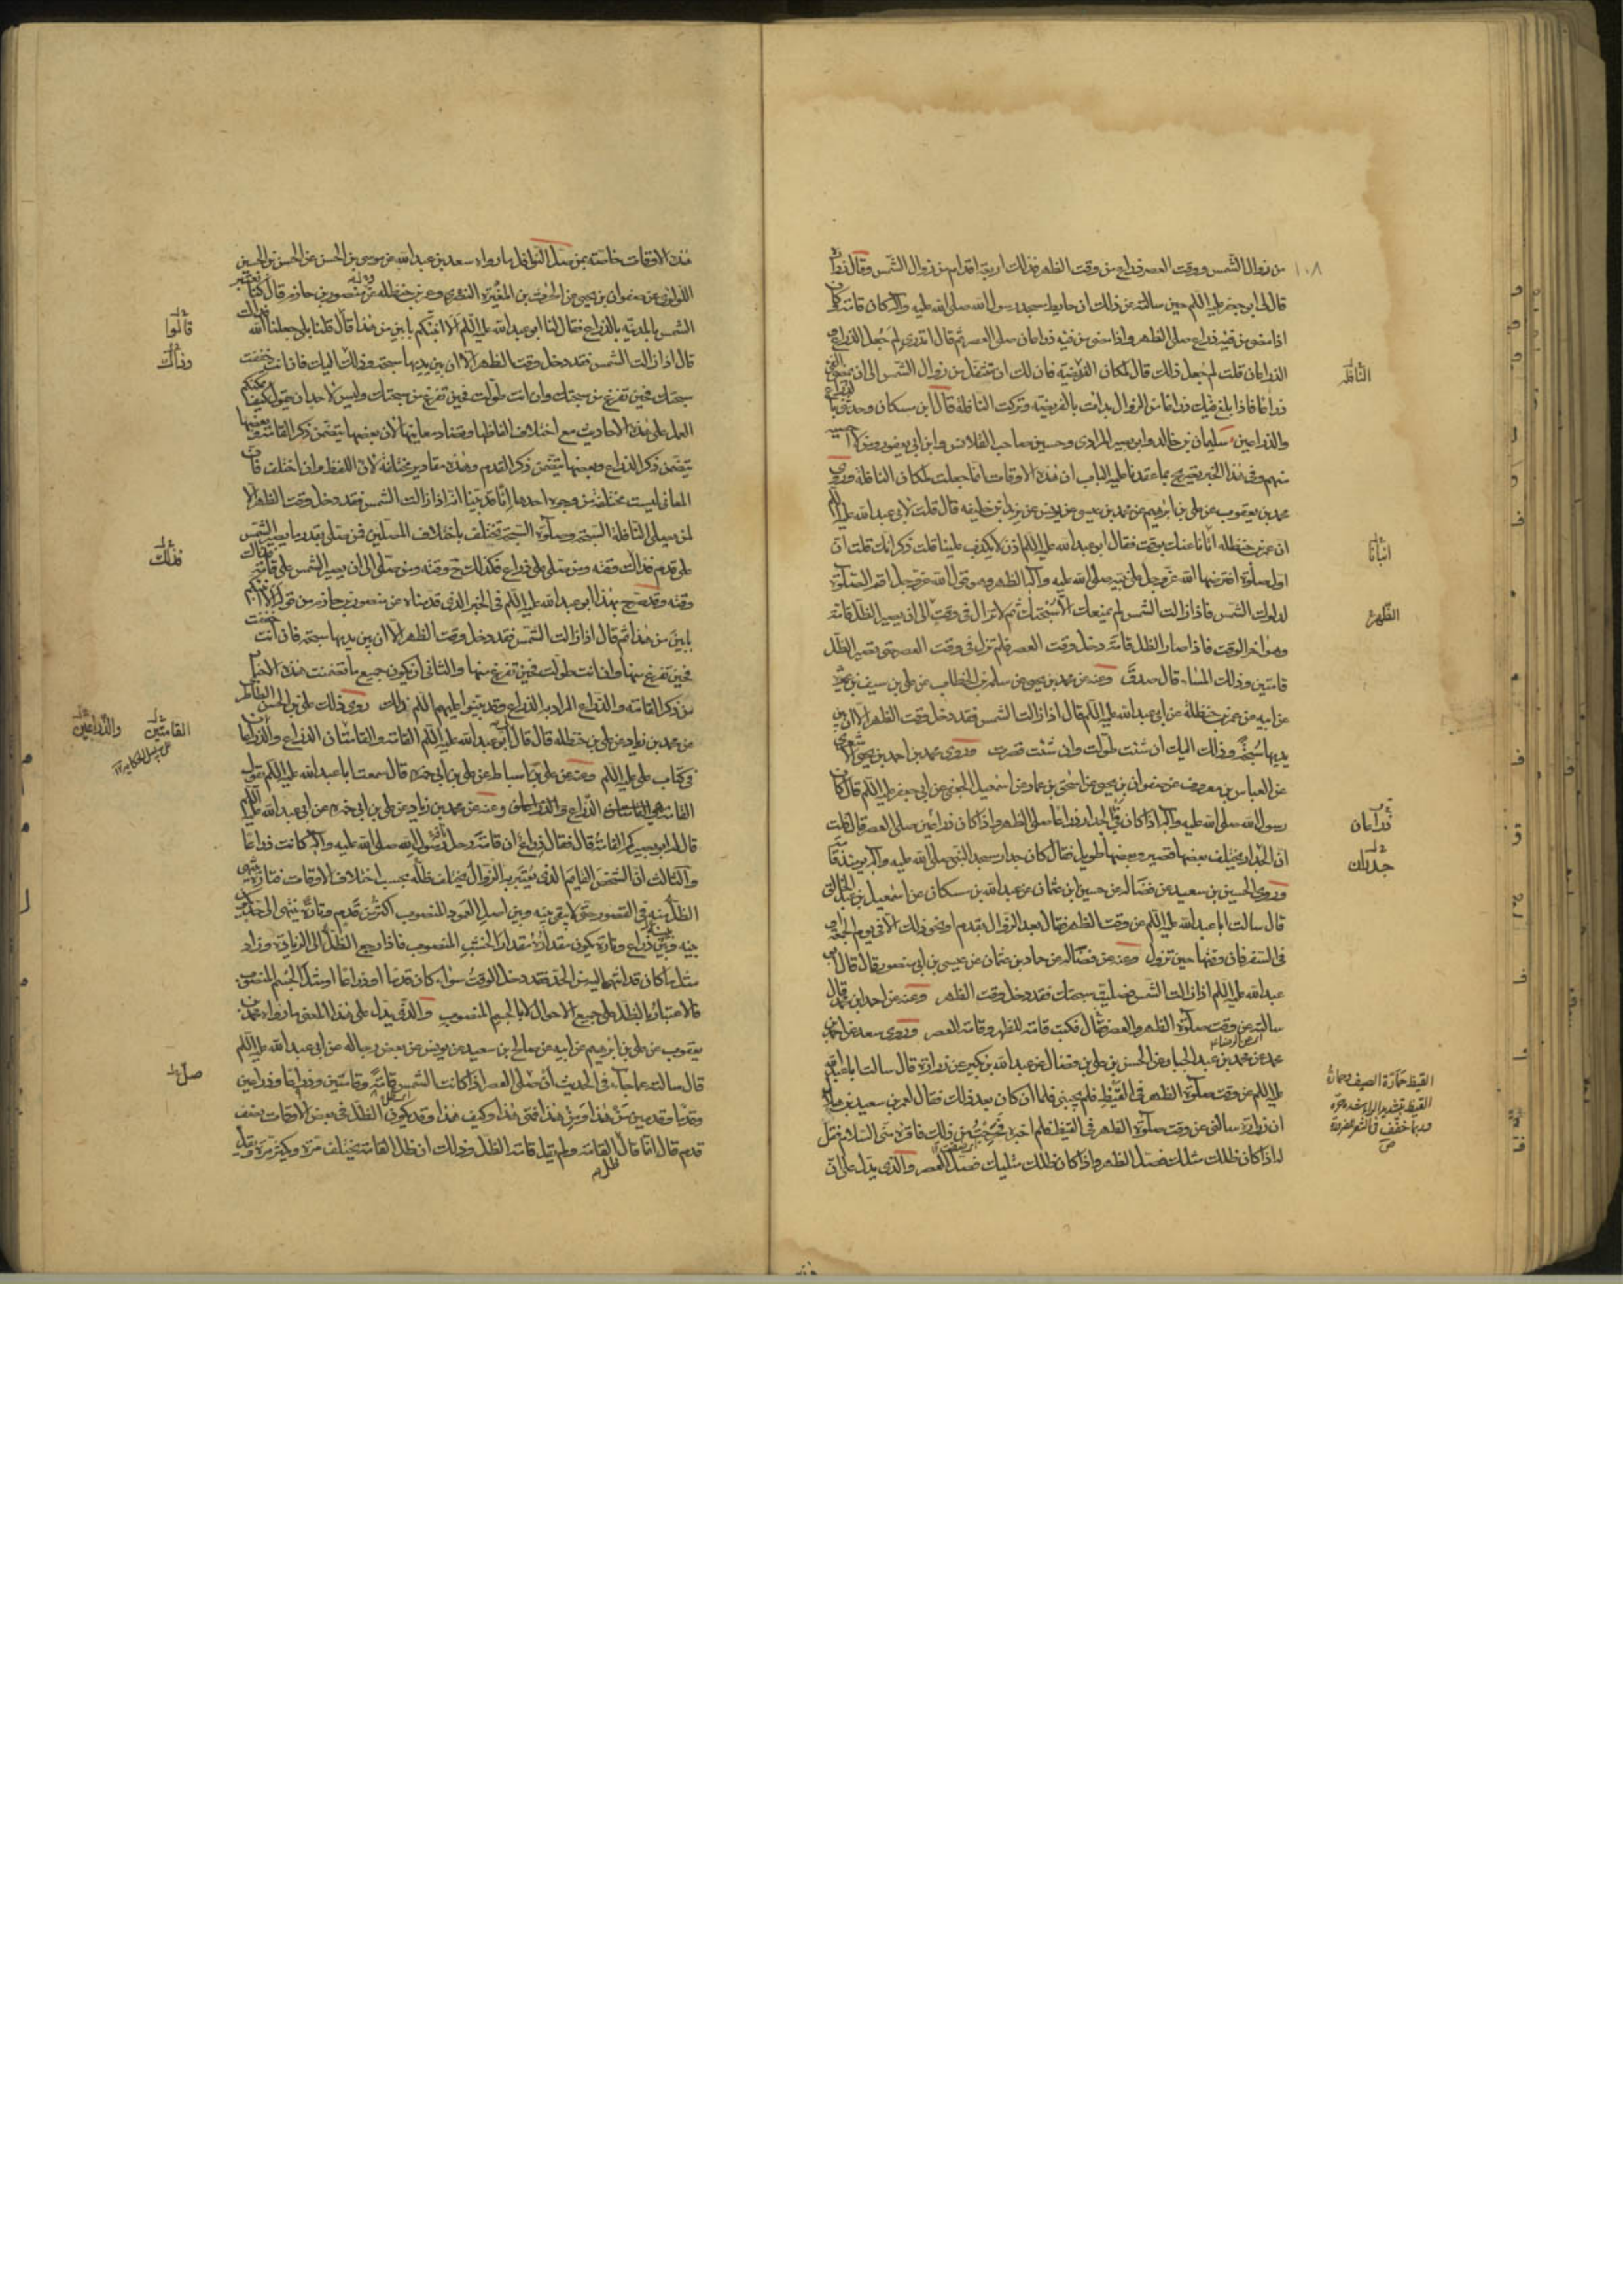 من زوال الشمس ووقت العصر ذراع من وقت الظهر فذلك اربعة اقدام من زوال الشمس وقال زرارة
قال لي ابو جعفر عليه السلم حين سالته عن ذلك ان حايط مسجد رسول الله صلى الله عليه وآله كان قامة فكان
اذا مضى من فيئه ذراع صلى الظهر واذا مضى من فيئه ذراعان صلى العصر ثم قال اتدري لم جعل الذراع و
الذراعان قلت لم جعل ذلك قال لمكان الفريضة فان لك ان تتنفل من زوال الشمس الى ان يمضى الفئ
ذراعا فاذا بلغ فيئك ذراعا من الزوال بدات بالفريضة وتركت النافلة قال ابن مسكان وحدثني بالذراع
والذراعين سليمان بن خالد وابو بصير المرادي وحسين صاحب القلانس وابن ابي يعفور ومن لا احصيه
منهم وفي هذا الخبر تصريح بما عقدنا عليه الباب ان هذه الاوقات انما جعلت لمكان النافلة وروى
محمد بن يعقوب عن علي بن ابرهيم عن محمد بن عيسى عن يونس عن يزيد بن خليفه قال قلت لابي عبد الله عليه السلم
ان عمر بن حنظله اتانا عنك بوقت فقال ابو عبد الله عليه السلم اذن لا يكذب علينا قلت ذكر انك قلت ان
اول صلوة افترضها الله عز وجل على نبيه صلى الله عليه وآله الظهر وهو قول الله عز وجل اقم الصلوة
لدلوك الشمس فاذا زالت الشمس لم يمنعك الا سبحتك ثم لا تزال في وقت الى ان يصير الظل قامة
وهو اخر الوقت فاذا صار الظل قامة دخل وقت العصر فلم تزل في وقت العصر حتى يصير الظل
قامتين وذلك المساء قال صدق وعنه عن محمد بن يحيى عن سلمة بن الخطاب عن علي بن سيف بن عميرة
عن ابيه عن عمر بن حنظلة عن ابي عبد الله عليه السلم قال اذا زالت الشمس فقد دخل وقت الظهر الا ان بين
يديها سبحة وذلك اليك ان شئت طولت وان شئت قصرت وروى محمد بن احمد بن يحيى الاشعرى
عن العباس بن معروف عن صفوان بن يحيى عن اسحق بن عمار عن اسمعيل الجعفي عن ابي جعفر عليه السلم قال كان
رسول الله صلى الله عليه وآله اذا كان فئ الجدار ذراعا صلى الظهر واذا كان ذراعين صلى العصر قال قلت
ان الجدار يختلف بعضها قصير وبعضها طويل فقال كان جدار مسجد النبي صلى الله عليه وآله يومئذ قامة
وروى الحسين بن سعيد عن فضاله عن حسين بن عثمان عن عبد الله بن مسكان عن اسمعيل بن عبد الخالق
قال سالت ابا عبد الله عليه السلم عن وقت الظهر فقال بعد الزوال بقدم او نحو ذلك الا في يوم الجمعة او
في السفر فان وقتها حين تزول وعنه عن فضاله عن حماد بن عثمان عن عيسى بن ابي منصور قال قال ابو
عبد الله عليه السلم اذا زالت الشمس فصليت سبحتك فقد دخل وقت الظهر وعنه عن احمد بن محمد قال
سالته عن وقت صلوة الظهر والعصر فكتب قامة للظهر وقامة للعصر وروى سعد عن احمد بن
محمد عن محمد بن عبد الجبار عن الحسن بن علي بن فضال عن عبد الله بن بكير عن زرارة قال سالت ابا عبد الله
عليه السلم عن وقت صلوة الظهر في القيظ فلم يجبني فلما ان كان بعد ذلك فقال لعمر بن سعيد بن هلال
ان زرارة سالني عن وقت صلوة الظهر في القيظ فلم اخبره فحرجت من ذلك فاقره مني السلام وقل
له اذا كان ظلك مثلك فصل الظهر واذا كان ظلك مثليك فصل العصر والذي يدل على ان
١٠٨
النافلة
انبانا
الظهر
ذراعان
جدران
القيظ حمارة الصيف
هذه الاوقات خاصة بمن يصلى النوافل ما رواه سعد بن عبد الله عن موسى بن الحسن عن الحسن بن الحسين
اللؤلؤي عن صفوان بن يحيى عن الحرث بن المغيرة النضري وعمر بن حنظله عن منصور بن حازم قال كنا نعتبر
الشمس بالمدينة بالذراع فقال لنا ابو عبد الله عليه السلم الا انبئكم بابين من هذا قال قلنا بلى جعلنا الله فداك
قال اذا زالت الشمس فقد دخل وقت الظهر الا ان بين يديها سبحة وذلك اليك فان انت خففت
سبحتك فحين تفرغ من سبحتك وان انت طولت فحين تفرغ من سبحتك وليس لاحد ان يقول كيف يمكنكم
العمل على هذه الاحاديث مع اختلاف الفاظها وتضاد معانيها لان بعضها يتضمن ذكر القامة وبعضها
يتضمن ذكر الذراع وبعضها يتضمن ذكر القدم وهذه مقادير مختلفة لان اللفظ وان اختلف فان
المعاني ليست مختلفة من وجوه احدها انا قد بينا انه اذا زالت الشمس فقد دخل وقت الظهر الا
لمن يصلى النافلة السبحة وصلوة السبحة تختلف باختلاف المصلين فمن صلى بقدر ما يصير الشمس
على قدم فذاك وقته ومن صلى على ذراع فكذلك وقته ومن صلى الى ان يصير الشمس على قامة فذاك
وقته وقد صرح بهذا ابو عبد الله عليه السلم في الخبر الذي قدمناه عن منصور بن حازم من قوله الا انبئكم
بابين من هذا ثم قال اذا زالت الشمس فقد دخل وقت الظهر الا ان بين يديها سبحة فان انت خففت
فحين تفرغ منها وان انت طولت فحين تفرغ منها والثاني ان يكون جميع ما تضمنت هذه الاخبار
من ذكر القامة والذراع المراد به الذراع وقد بينوا عليهم السلم ذلك روى ذلك علي بن الحسن الطاطري
عن محمد بن زياد عن علي بن حنظله قال قال ابو عبد الله عليه السلم القامة والقامتان الذراع والذراعان
في كتاب علي عليه السلم وعنه عن علي بن اسباط عن علي بن ابي حمزة قال سمعت ابا عبد الله عليه السلم يقول
القامة هي الذراع وعنه عن محمد بن زياد عن علي بن ابي حمزة عن ابي عبد الله عليه السلم
قال له ابو بصير كم القامة قال فقال ذراع ان قامة رحل رسول الله صلى الله عليه وآله كانت ذراعا
والثالث ان الشخص القايم الذي يعتبر به الزوال يختلف ظله بحسب اختلاف الاوقات فتارة ينتهى
الظل منه في القصور حتى لا يبقى بينه وبين اصل العمود المنصوب اكثر من قدم وتارة ينتهى الى حد يكون
بينه وبين ذراع وتارة يكون مقداره مقدار الخشب المنصوب فاذا رجع الظل الى الزيادة وزاد
مثل ما كان قد انتهى اليه من الحد فقد دخل الوقت سواء كان قدما او ذراعا او مثل الجسم المنصوب
فالاعتبار بالظل على جميع الاحوال لا بالجسم المنصوب والذي يدل على هذا المعنى ما رواه محمد بن
يعقوب عن علي بن ابرهيم عن ابيه عن صالح بن سعيد عن يونس عن بعض رجاله عن ابي عبد الله عليه السلم
قال سالته عما جاء في الحديث ان صلى العصر اذا كانت الشمس قامة وقامتين وذراعا وذراعين
وقدما وقدمين من هذا ومن هذا فمتى هذا وكيف هذا وقد يكون الظل في بعض الاوقات نصف
قدم قال انما قال ظل القامة ولم يقل قامة الظل وذلك ان ظل القامة يختلف مرة ويكثر مرة ويقل
قالوا
وذاك
فذلك
القامتين والذراعين
صل